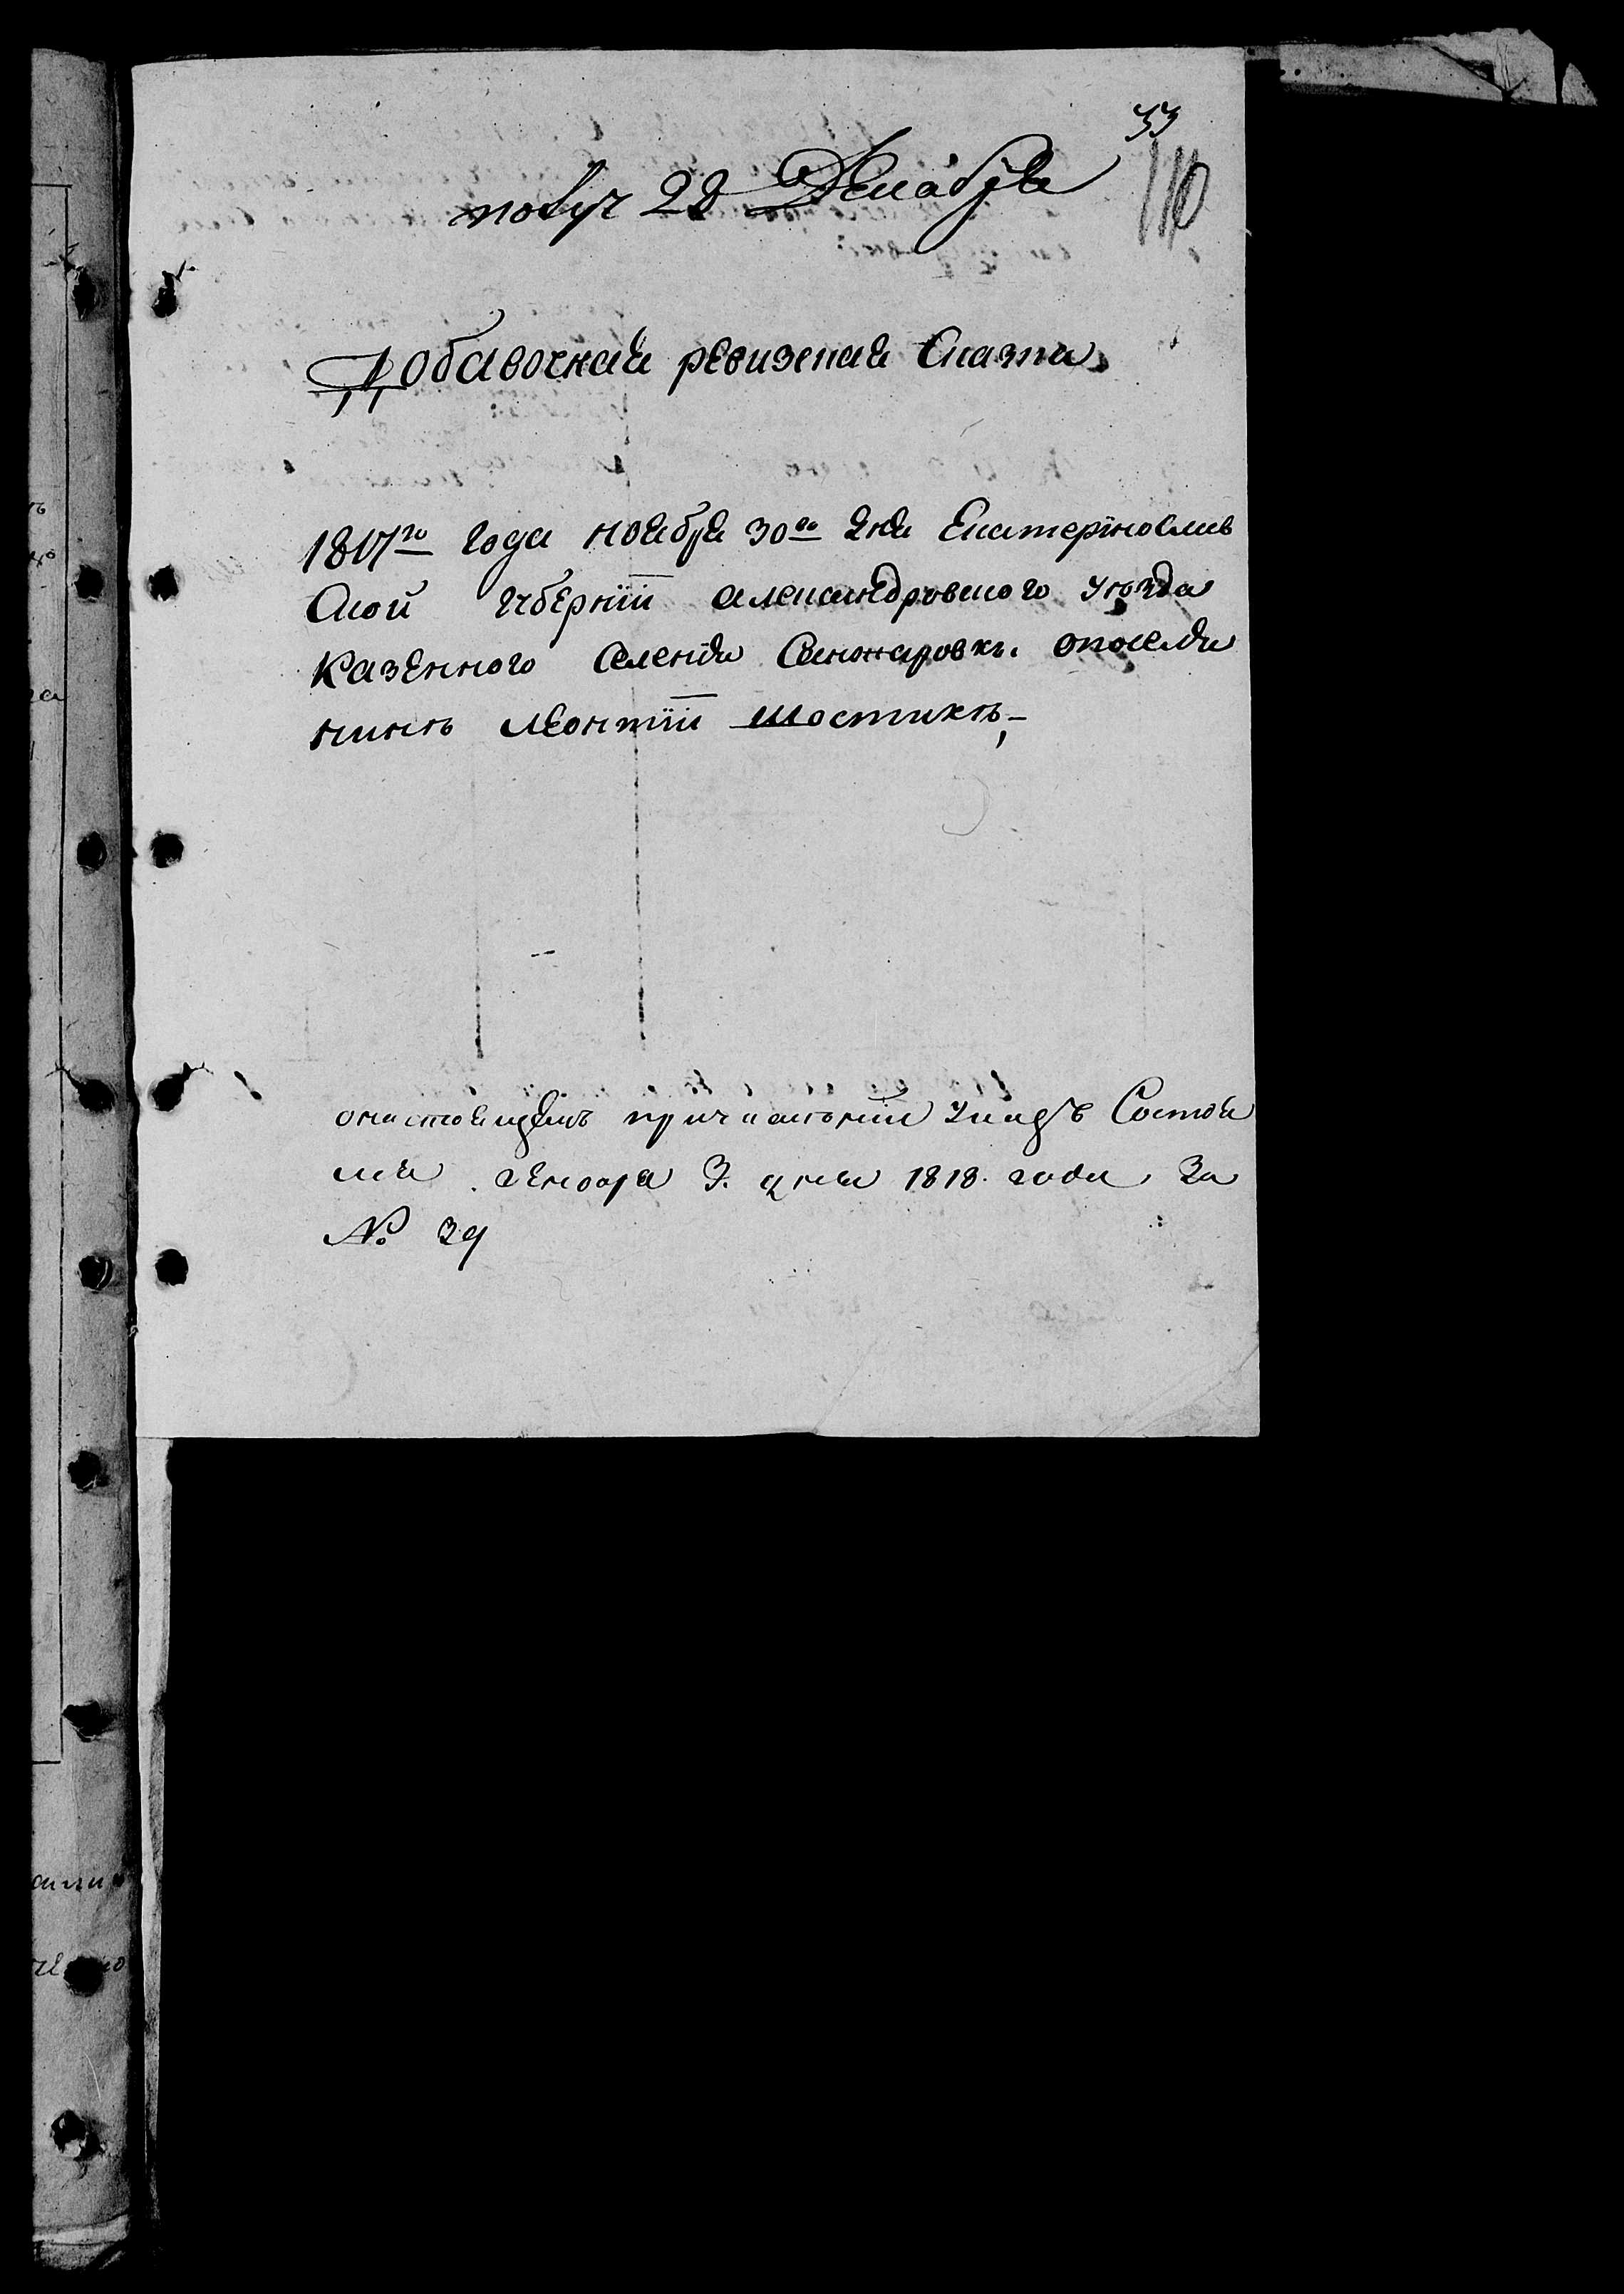 33
110
получ 22 Декабря
Добавочная ревизская Сказка
1817го года ноября 30го дня Екатеринослав
Ской губернїи александровского уезда
казенного селенїя Санжаровки опоселя
нинъ леонтїй шостикъ,
онастоящемъ причисленїи указъ Состоя
лся генваря 3. дня 1818. года За
№ 39